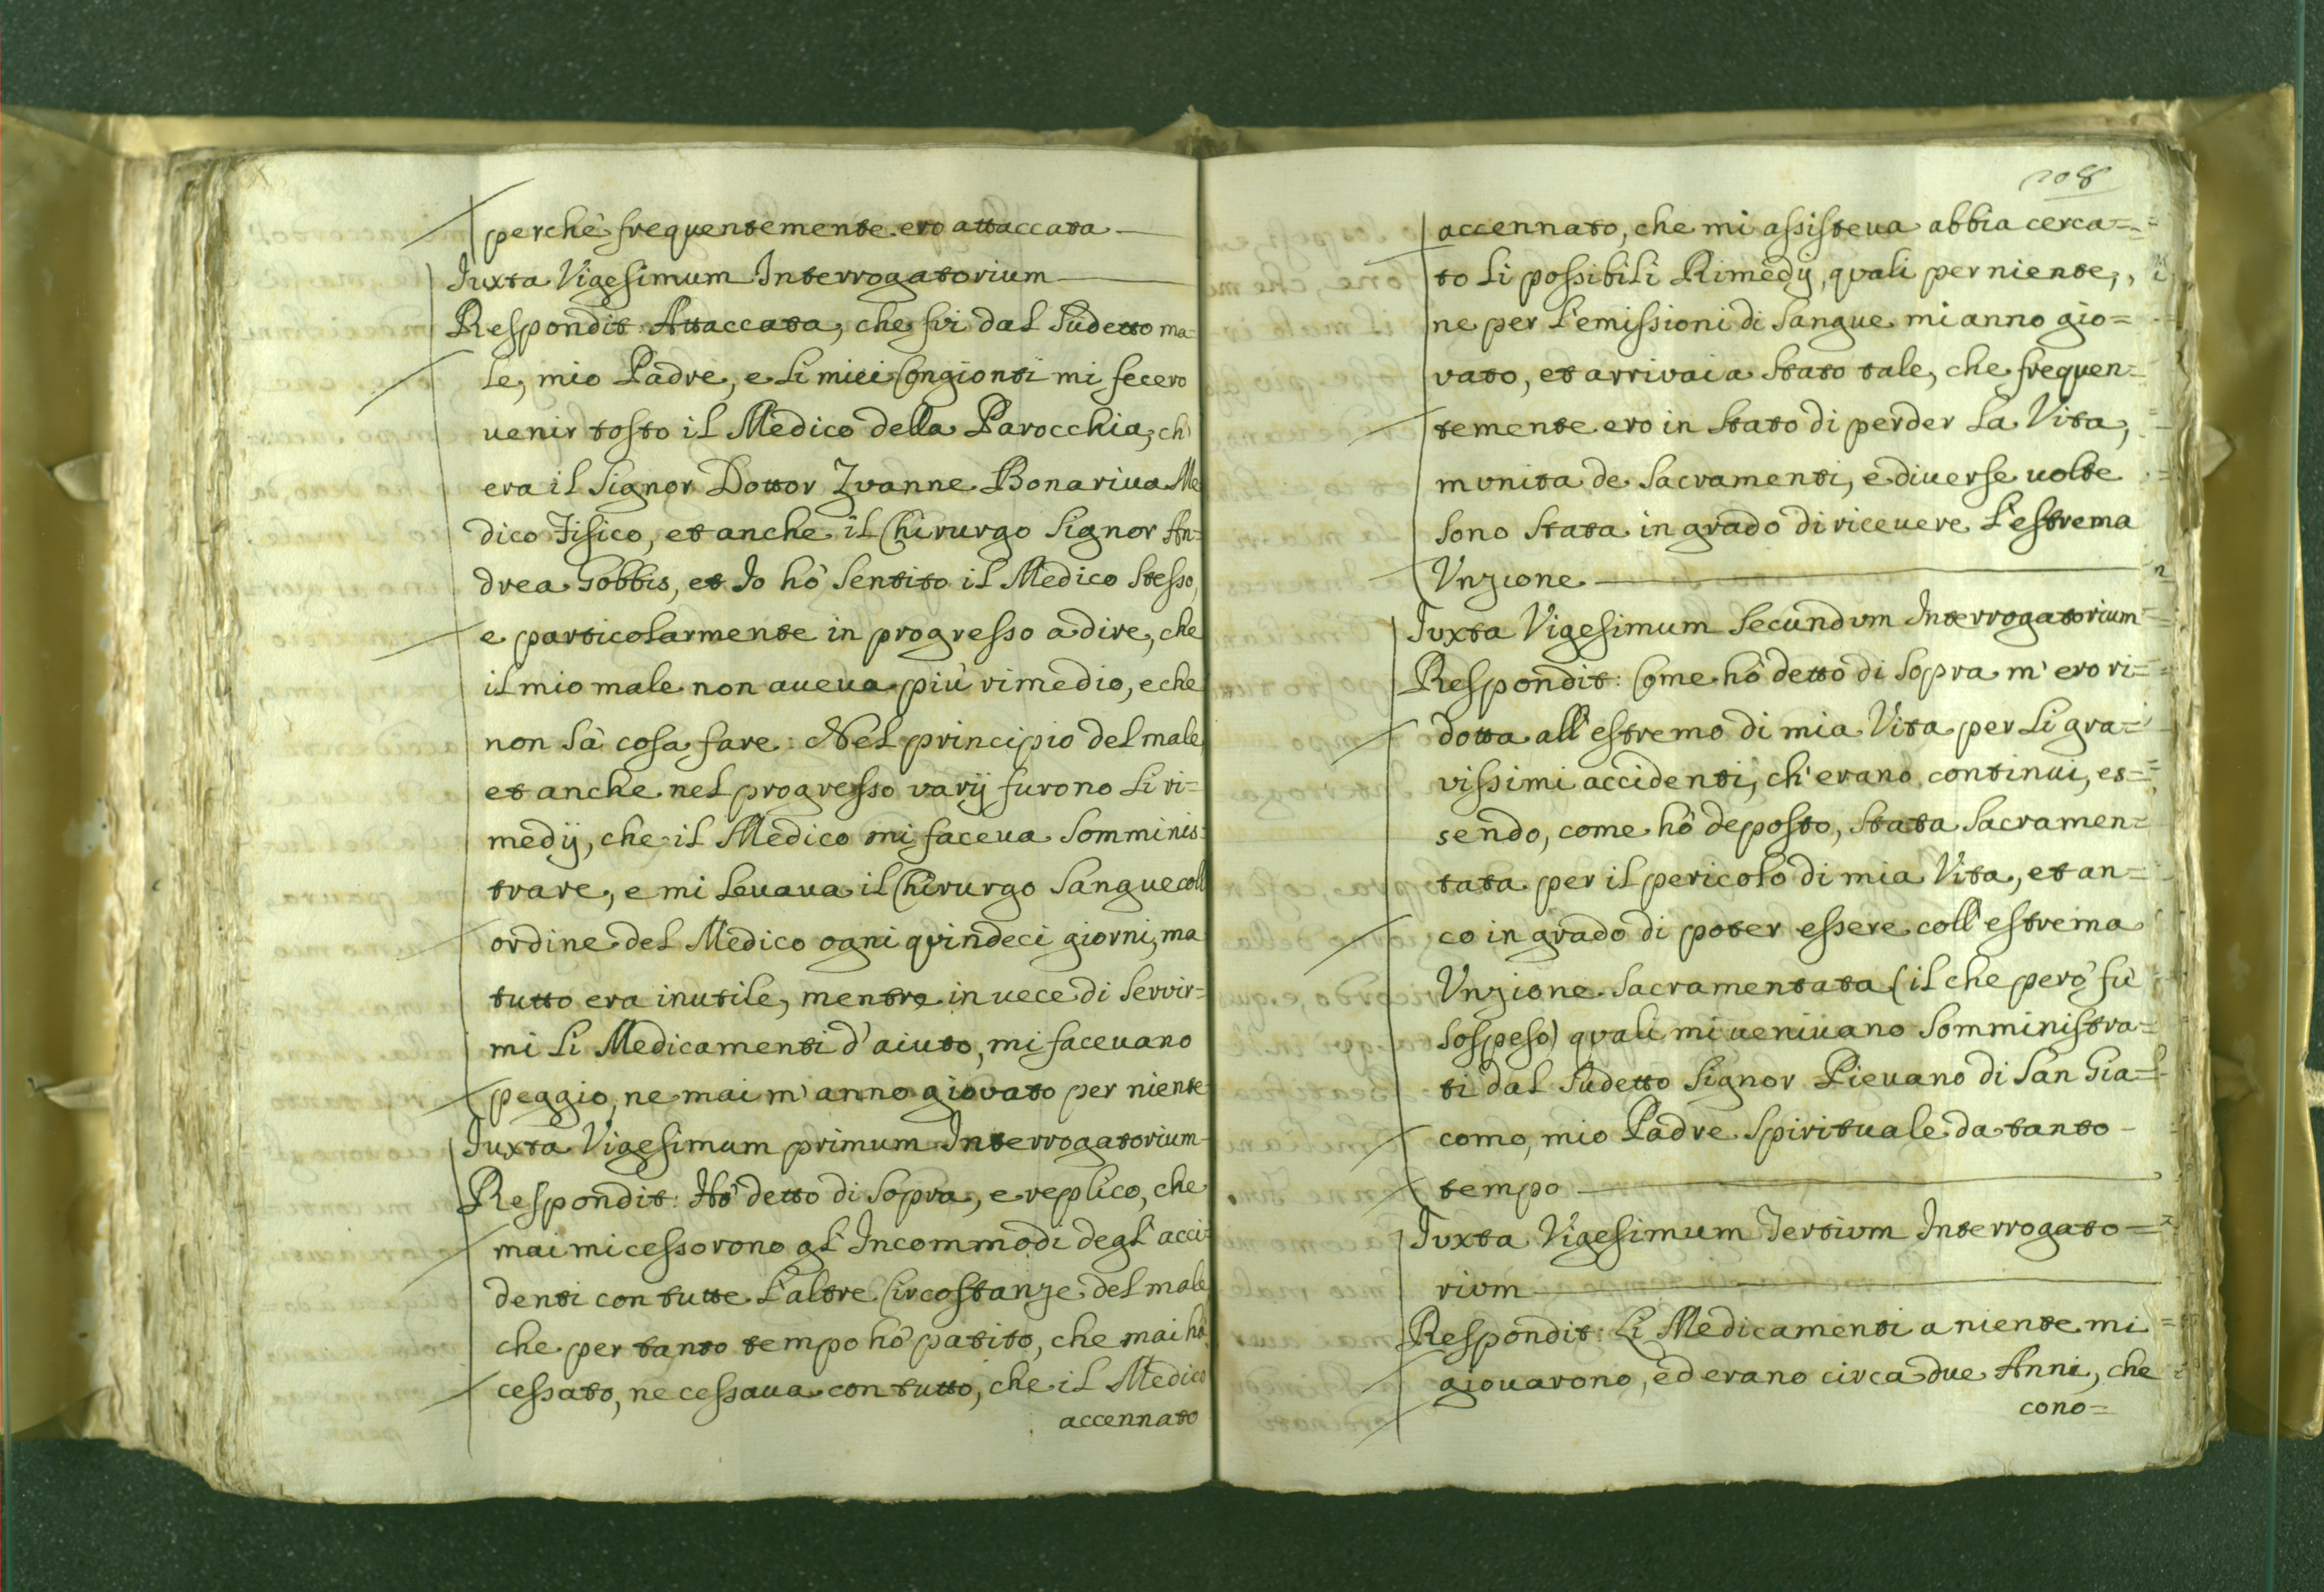 perchè frequentemente ero attaccata
Iuxta Vigesimum Interrogatorium
Respondit: Attaccata, che fui dal Sudetto ma-
le, mio Padre, e li miei Congionti mi fecero
uenir tosto il Medico della Parocchia, ch'
era il Signor Dottor Zuanne Bonariua Me
dico Fisico, et anche il Chirurgo Signor An-
drea Gobbis, et Io hò Sentito il Medico Stesso,
e particolarmente in progresso a dire, che
il mio male non aueua più rimedio, e che
non sà cosa fare: Nel principio del male
et anche nel progresso varij furono li ri=
medij, che il Medico mi faceua Somminis:
trare, e mi leuaua il Chirurgo Sangue coll
ordine del Medico ogni quindeci giorni, ma
tutto era inutile, mentre in uece di Servir=
mi li Medicamenti d'aiuto, mi faceuano
peggio, ne mai m'anno giovato per niente
Iuxta Vigesimum primum Interrogatorium
Respondit: Hò detto di Sopra, e replico, che
mai mi cessorono gl'Incommodi degl'acci=
denti con tutte l'altre Circostanze del male
che per tanto tempo hò patito, che mai hà
cessato, ne cessaua con tutto, che il Medico
accennato
208
accennato, che mi assisteua abbia cerca=
to li possibili Rimedij, quali per niente,
ne per l'emissioni di Sangue mi anno gio=
vato, et arrivai a Stato tale, che frequen=
temente ero in Stato di perder la Vita,
munita de Sacramenti, e diuerse uolte
sono Stata in grado di riceuere l'estrema
Unzione
Iuxta Vigesimum Secundum Interrogatorium
Respondit: Come hò detto di Sopra m'ero ri=
dotta all'estremo di mia Vita per li gra=
vissimi accidenti, ch'erano continui, es=
sendo, come hò deposto, Stata Sacramen=
tata per il pericolo di mia Vita, et an=
co in grado di poter essere coll'estrema
Unzione Sacramentata (il che però fù
Sospeso) quali mi ueniuano Somministra=
ti dal Sudetto Signor Pieuano di San Gia=
como, mio Padre Spirituale da tanto
tempo
Iuxta Vigesimum Tertium Interrogato=
rium
Respondit: Li Medicamenti a niente mi
giouarono, ed erano circa due Anni, che
cono=